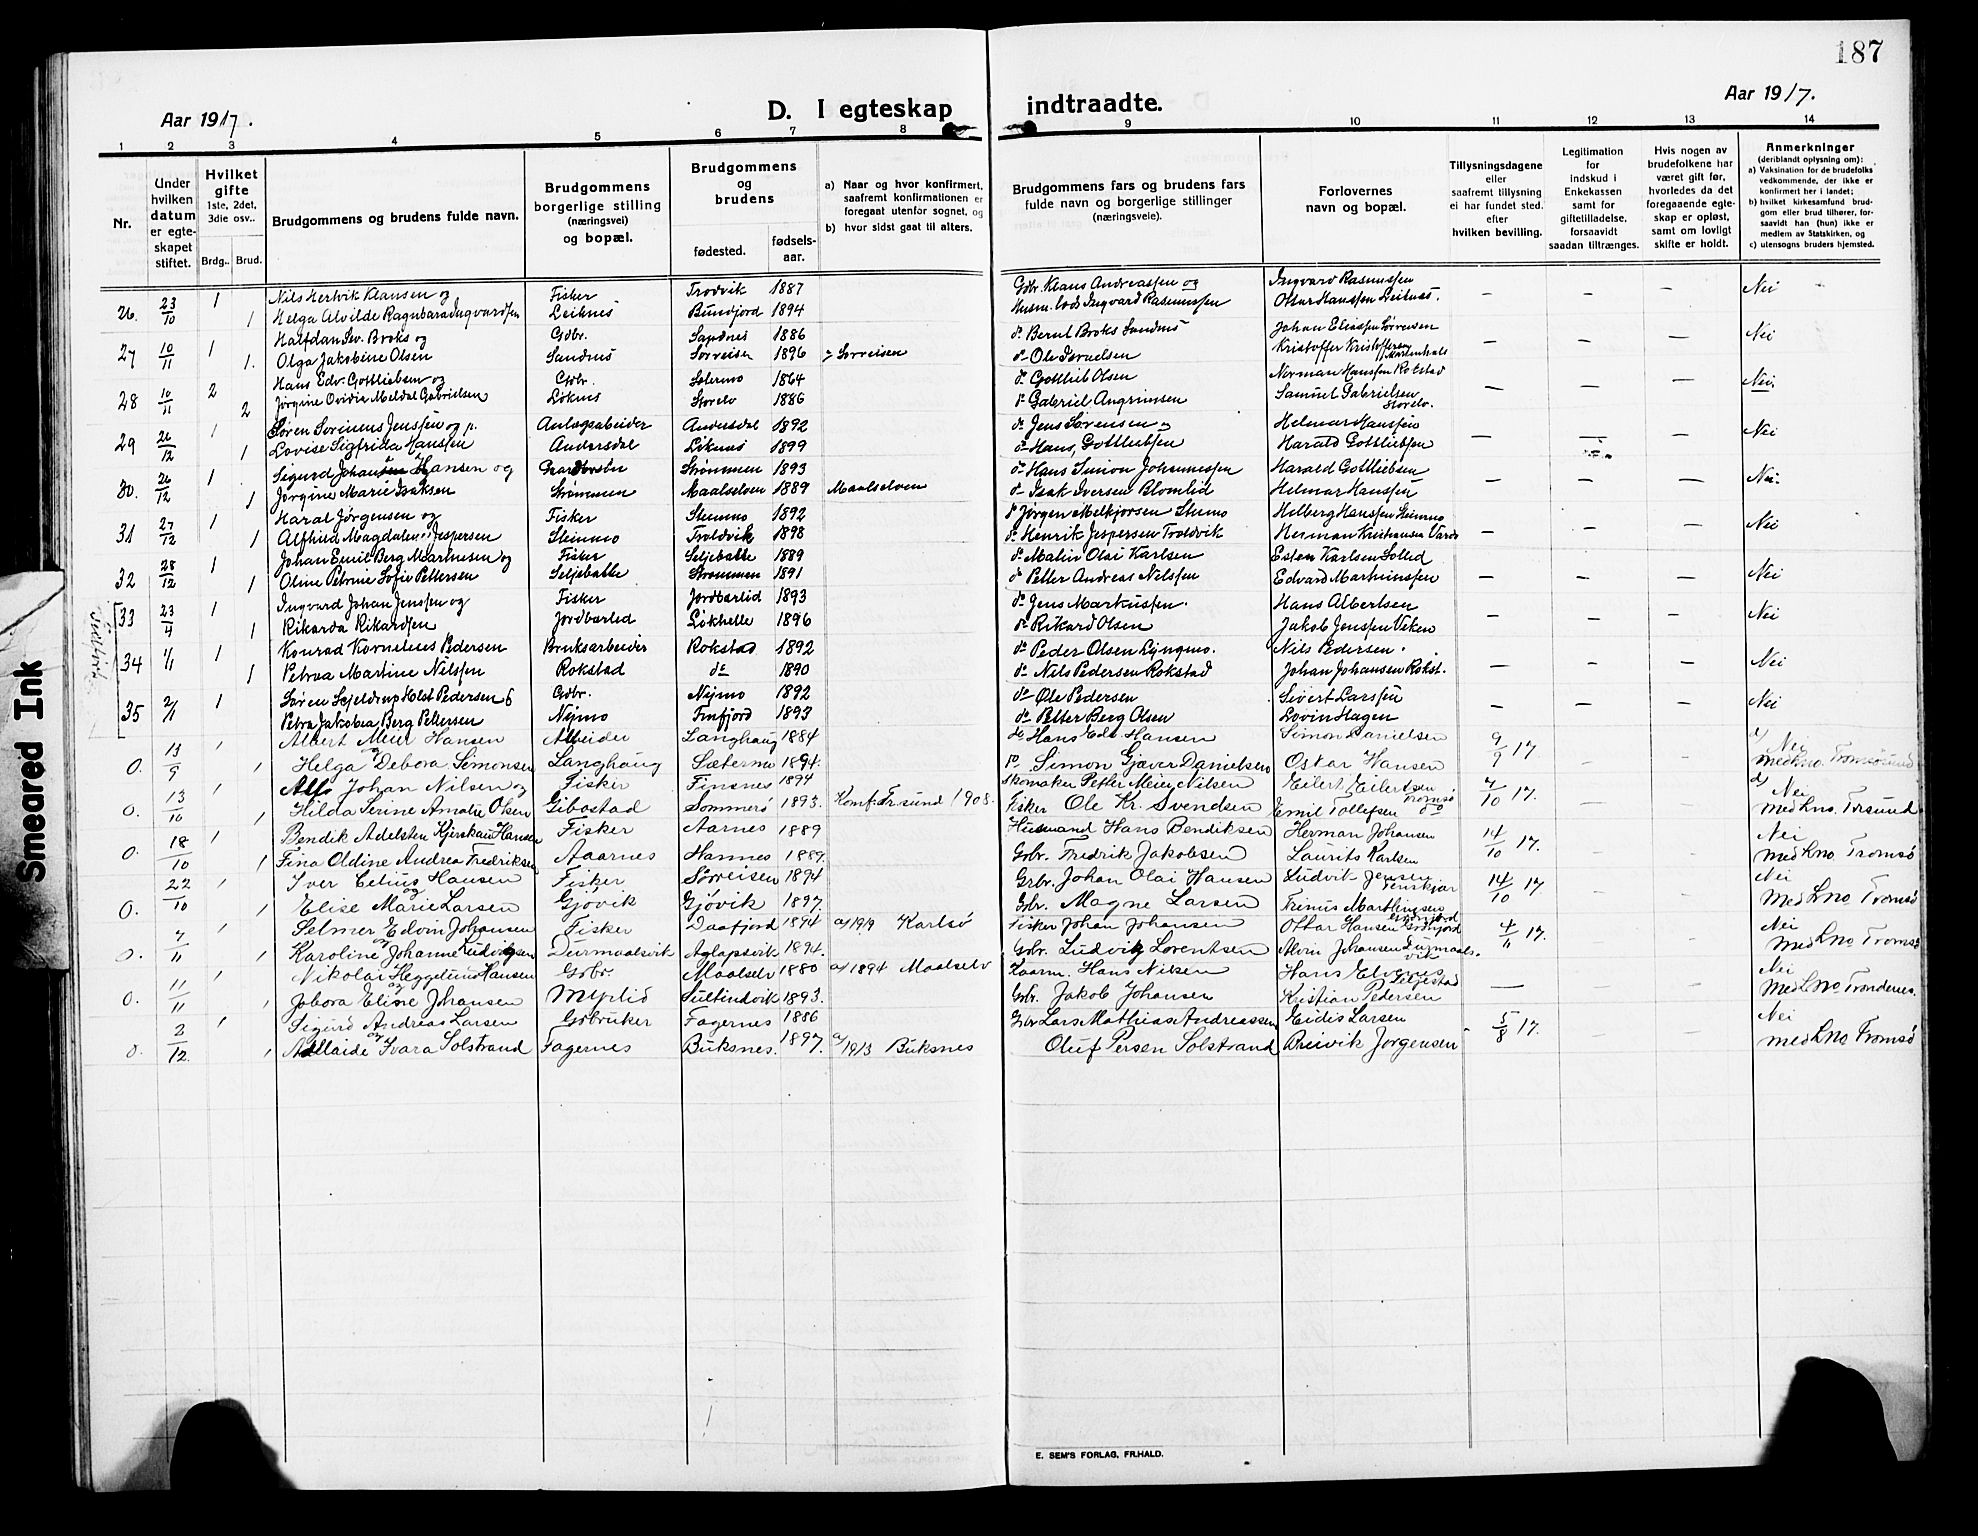 187
Aar 1917.
D. I egteskap indtraadte.
Aar 1917.
1 2 3 4 5 6 7 8 9 10 11 12 13 14
Nr.
Under hvilken datum er egteskapet stiftet.
Hvilket gifte 1ste, 2det, 3die osv..
Brdg.. Brud.
Brudgommens og brudens fulde navn.
Brudgommens borgerlige stilling (næringsvei) og bopæl.
Brudgommens og brudens
fødested. fødselsaar.
a) Naar og hvor konfirmert, saafremt konfirmationen er foregaat utenfor sognet, og
b) hvor sidst gaat til alters.
Brudgommens fars og brudens fars fulde navn og borgerlige stillinger (næringsveie).
Forlovernes navn og bopæl.
Tillysningsdagene eller saafremt tillysning ei har fundet sted. efter hvilken bevilling.
Legitimation for indskud i Enkekassen samt for giftetilladelse, forsaavidt saadan tiltrænges.
Hvis nogen av brudefolkene har været gift før, hvorledes da det foregaaende egteskap er opløst, samt om lovligt skifte er holdt.
Anmerkninger (deriblandt oplysning om):
a) Vaksination for de brudefolks vedkommende, der ikke er konfirmert her i landet;
b) hvilket kirkesamfund brudgom eller brud tilhører, forsaavidt han (hun) ikke er medlem av Statskirken, og
c) utensogns bruders hjemsted.
Nils Hertvik Klausen og Fisker Trodvik 1887 Gdbr. Klaus Andreassen og Ingvard Rasmussen
26. 23/10 1 1 Helga Alvilde Ragnbara Ingvardsen Leiknes Bundjord 1894 Husm. Lods Ingvard Rasmussen Ottar Hansen Leiknes. — — — Nei
Halfdan Sev. Broks og Gdbr. Sandnes 1886 do Bernt Broks Sandnes Johan Eliassen Sørensen
27 10/11 1 1. Olga Jakobine Olsen Sandnes Sørreisen 1896 Sørreisen do Ole Israelsen Kristoffer Kristoffersen — — — Nei
Hans Edv. Gottliebsen og Gdbr. Salermo 1864 do Gottlieb Olsen Norman Hanssen Rokstad
28 10/11 2 2 Jørgine Ovidia Meldal Gabrielsen Løknes Storelv 1886 do Gabriel Angrimsen Samuel Gabrielsen Storelv. — — — Nei.
Søren Sørinus Jenssen og p. Anlægsabeider Andersdal 1892 do Jens Sørensen og Helmar Hanssen
29 26/12 1 1 Lovise Sigfrida Hanssen Andersdal Løknes 1899 do Hans Gottliebsen Harald Gottliebsen — — — Nei
Sigurd Johan Hansen og Gaardbruker Strømmen 1893 do Hans Simon Johannessen Harald Gottliebsen
30. 26/12 1 1 Jørgine Marie Isaksen Strømmen Maalselven 1889 Maalselven do Isak Iversen Blomlid Helmar Hanssen — — — Nei.
Haral Jørgensen og Fisker Stenmo 1892 do Jørgen Melkjorsen Stenmo Helberg Hanssen Heimmo
31 27/12 1 1 Alfhild Magdalene Jespersen Stenmo Troldvik 1898 do Henrik Jespersen Troldvik Herman Kristiansen — — — Nei
Johan Emil Berg Martinsen og Fisker Seljebakke 1889 do Matin Olai Karlsen Esten Karlsen Solled
32 28/12 1 1 Oline Petrine Sofie Pettersen Seljebakke Strømmen 1891 do Petter Andreas Nilssen Edvard Martinussen — — — Nei
Ingvard Johan Jenssen og Fisker Jordbarlid 1893 do Jens Markussen. Hans Albertsen
33 23/4 1 1 Rikarda Rikardsen Jordbarled Løkhelle 1896 do Rikard Olsen Jakob Jenssen Veken — — — Nei
Konrad Kornelius Pedersen Bruksarbeider Rokstad 1892 do Peder Olsen Lyngmo. Nils Pedersen.
34 1/11 1 1 Petrea Martine Nilssen Rokstad do 1890 do Nils Pedersen Rokstad Johan Johansen Rokst. — — — Nei
Søren Schjeldrup Holst Pedersen Gdbr. Nejmo 1892 do Ole Pedersen Sivert Larssen
35 2/11 1 Petra Jakobea Berg Pettersen Nejmo Finfjord 1893 do Petter Berg Olsen Lovin Hagen — — — Nei
Albert Meier Hansen Arbeider Langhaug 1884 do Hans Edv. Hansen Simon Danielsen
0. 13/9 1 1 og Helga Debora Simonsen Langhaug Sæterma 1894. do Simon Gjæver Danielsen Oskar Hansen 9/9 17. Nei med Lno. Tromsøsund
Alfo Johan Nilsen og Fisker Finsnes 1894 Skomaker Petter Meier Nilsen Eilert Eilertsen Tromsø
0. 13/10 1 1 Hilda Serine Amalie Olsen Gibostad Sommerø 1893. Konf. Tr.sund 1908. Fisker Ole Kr. Svendsen Emil Tollefsen do 7/10 17. Nei med Lno. Tr.sund
Bendik Adelsten Kjerskau Hansen Fisker Aarnes 1889 Husmand Hans Bendiksen Herman Johansen
0. 18/10 1 1 Fina Oldine Andrea Fredriksen Aaarnes Hannes 1889. Gdbr. Fredrik Jakobsen Laurits Karlsen 14/10 17. Nei med Lno. Tromsø
Iver Celius Hansen Fisker Sørreisen 1894 Grbr. Johan Olai Hansen Ludvik Jensen Tenskjær
0. 22/10 1 1 og Elise Marie Larsen Gjøvik Gjøvik 1897. Gdbr. Magne Larsen Trinus Martinusen 14/10 17. Nei Med Lno Tromsø
Selmer Edvin Johansen Fisker Daafjord 1894 a) 1919 Karlsø Fisker Johan Johansen Ottar Hansen Grøtfjord
0. 7/11 1 1 og Karoline Johanne Ludvigsen Durmaalsvik Aglapsvik 1894. Gdbr. Ludvik Lorentsen Alvin Johansen Durmaalsvik 4/11 17. Nei Med Lno Tromsø
Nikolai Heggelund Hansen Gdbr. Maalselv 1880 a) 1894 Maalselv Kaarm. Hans Nilsen Hans Elvenes Seljestad
0. 11/11 1 1 og Jobora Eline Johansen Myrlid Sultindvik 1893. Gdbr. Jakob Johansen Kristian Pedersen — Nei Med Lno Trondenes.
Sigurd Andreas Larsen Gdbruker Fagernes 1886 Gdbr Lars Mathias Andreassen Eidis Larsen
0. 2/12 1 1 og Adelaide Ivara Solstrand Fagernes Buksnes. 1897. a) 1913 Buksnes Oluf Persen Solstrand Breivik Jørgensen 5/8 17. Nei med Lno Tromsø
E. SEM'S FORLAG, FR.HALD.
Smeared Ink